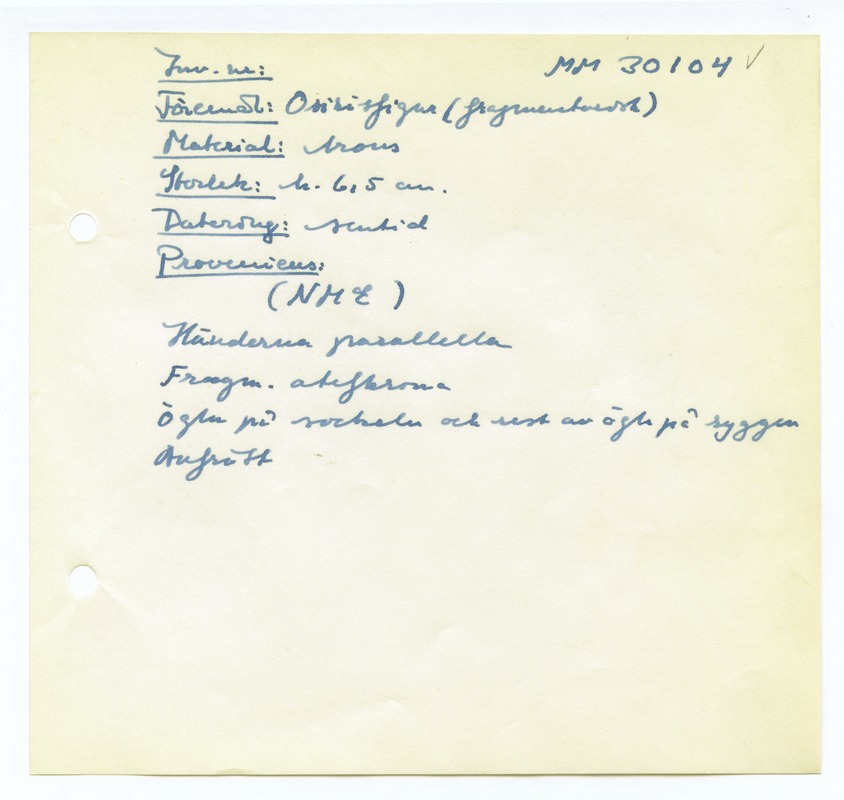 Inv. nr: MM 30104 ✓
Föremål: Osirisfigur (fragmentarisk)
Material: brons
Storlek: h. 6,5 cm.
Datering: sentid
Proveniens:
(NME)
Händerna parallella
Fragm. atefkrona
Ögla på sockeln och rest av ögla på ryggen
Anfrätt